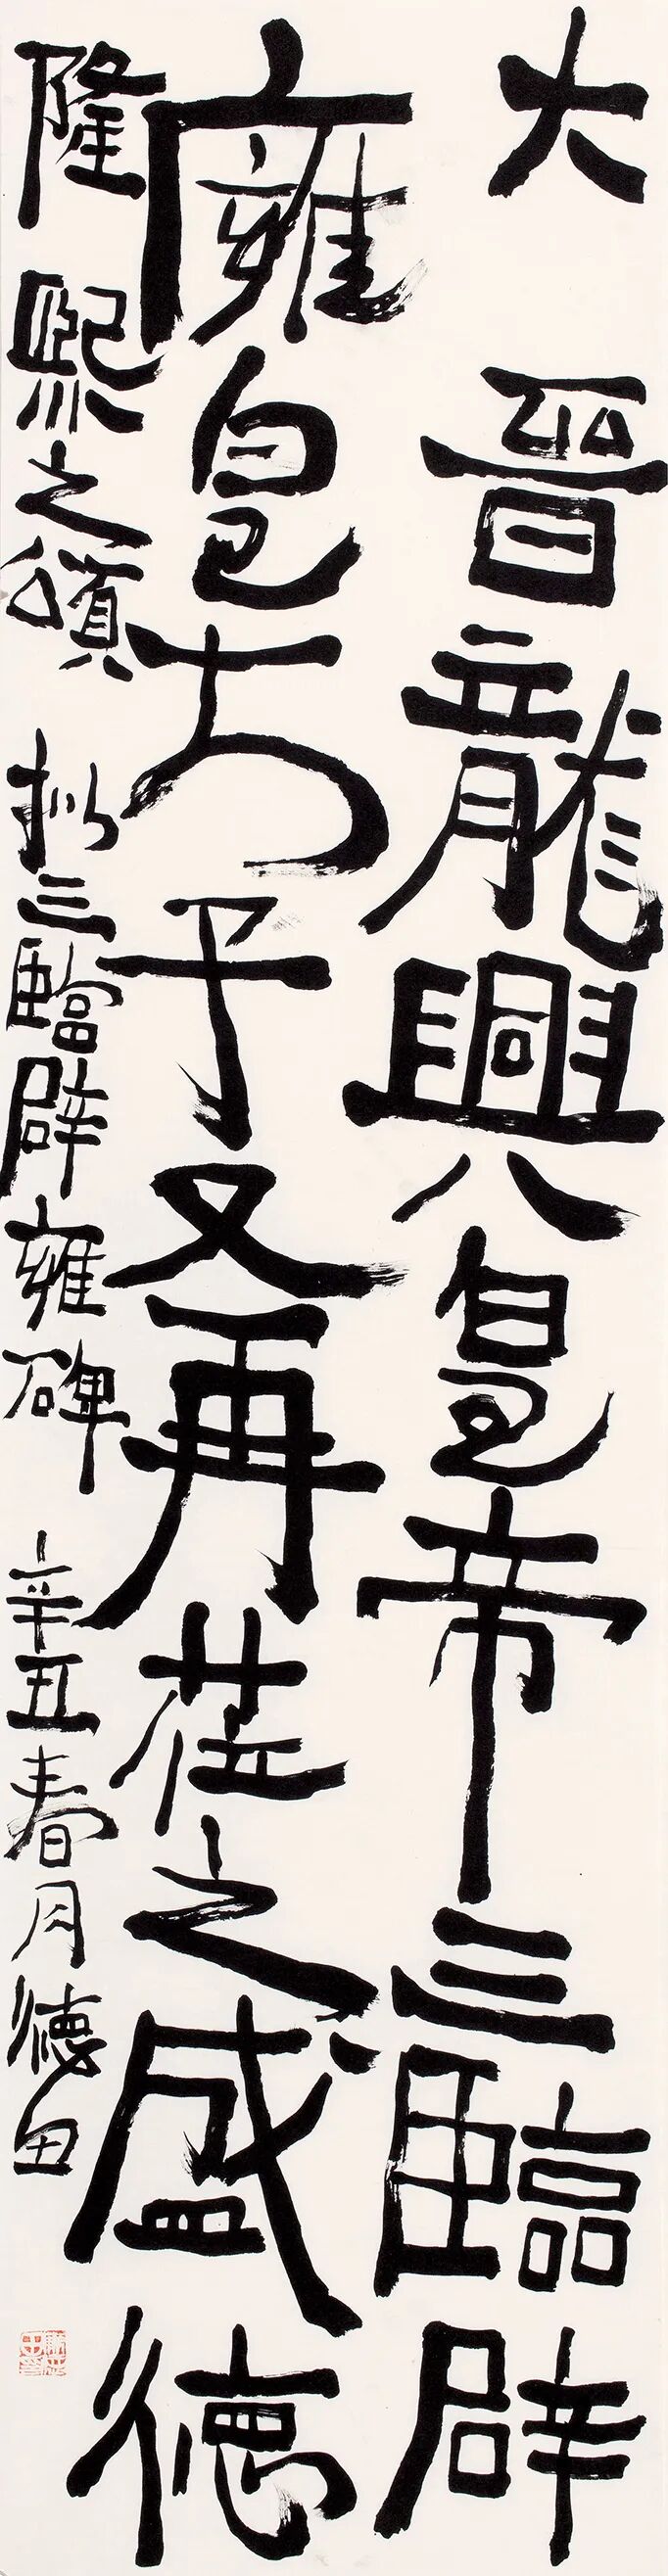 大晉龍興皇帝三臨辟
廱皇太子又再莅之盛德
隆熙之頌 拟三臨辟雍碑 辛丑春月德田